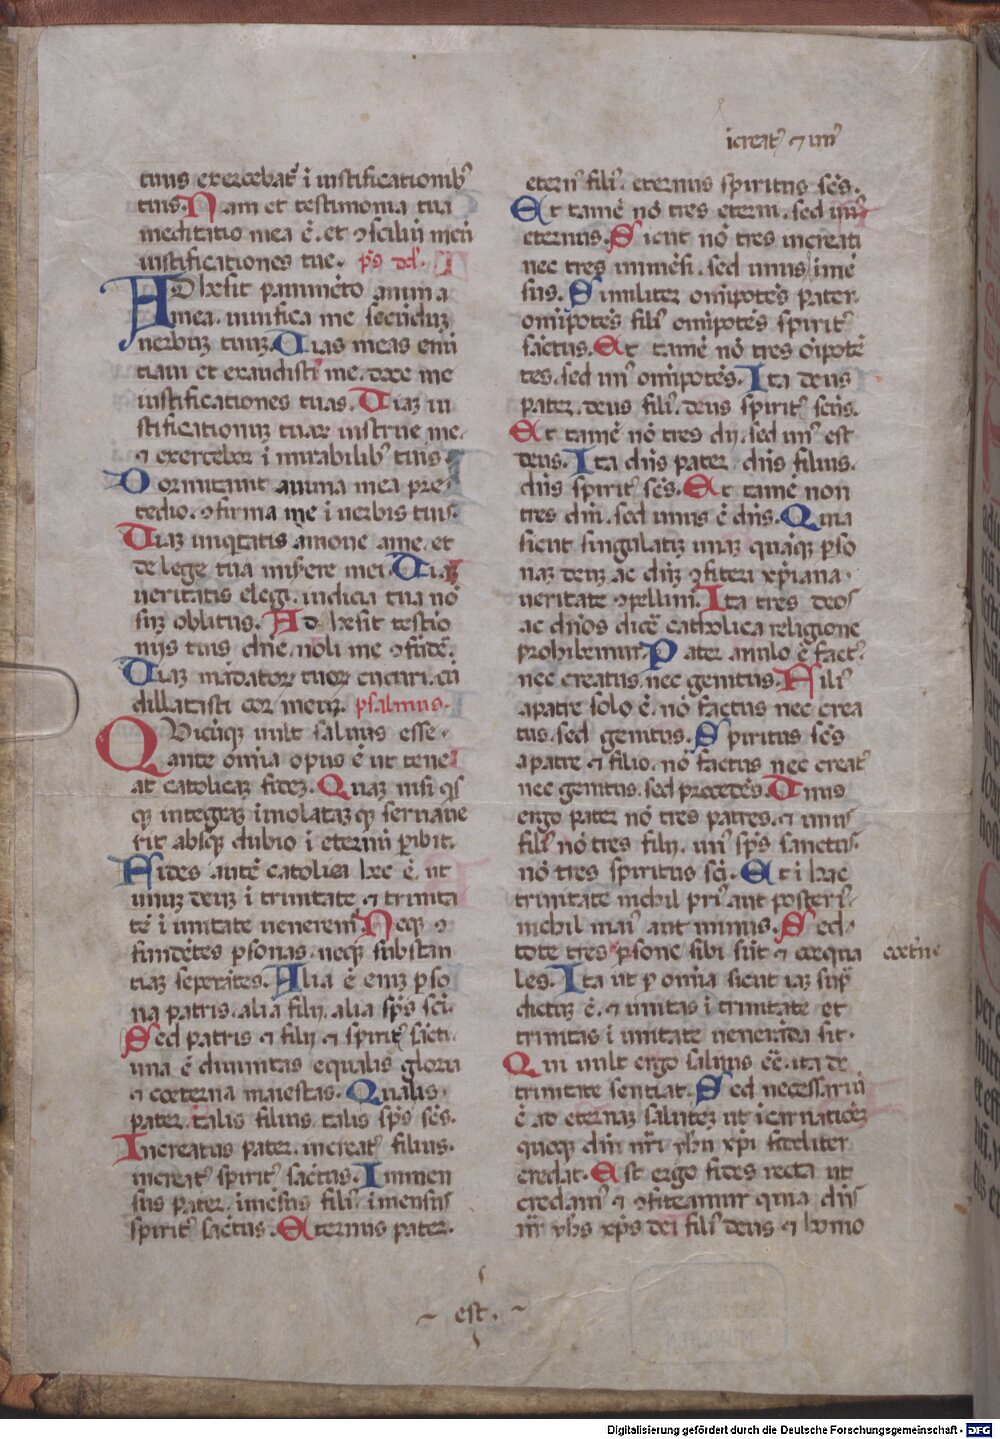 tuus exercebat̃ i iustificationibꝰ
tuis. Nam et testimonia tua
meditatio mea ē. et ꝯsiliũ meũ
iustificationes tue. pˢ dd.
ADhesit pauimẽto anima
mea. uiuifica me secũduꝫ
uerbuꝫ tuuꝫ. Uias meas enũ
tiaui et exaudisti me. doce me
iustificationes tuas. Uiaꝫ iu
stificationuꝫ tuaꝝ instrue me.
⁊ exercebor i mirabilibꝰ tuis.
Dormitauit anima mea pre
tedio. ꝯfirma me i uerbis tuis.
Uiaꝫ iniqtatis amoue ame. et
de lege tua miserere mei. Uiaꝫ
ueritatis elegi. iudicia tua nõ
suꝫ oblitus. Adhesit testio
nijs tuis dñe. noli me ꝯfũdẽ.
Uiaꝫ mãdatoꝝ tuoꝝ cucurri. cũ
dillatasti cor meuꝫ. psalmus.
QUicũqꝫ uult saluus esse.
ante oĩnia opus ẽ ut tene
at catolicaꝫ fideꝫ. Quaꝫ nisi qͥs
qꝫ integraꝫ iniolataꝫqꝫ seruaue
rit absqꝫ dubio i eternũ ꝑibit.
Fides autẽ catolica hec ẽ. ut
unuꝫ deuꝫ i trinitate ⁊ trinita
tẽ i unitate ueneremꝰ. Neqꝫ ꝯ
fundẽtes ꝑsonas. neqꝫ substan
tiaꝫ seperãtes. Alia ẽ eniꝫ ꝑso
na patris. alia filij. alia spˢ sc̃i.
Sed patris ⁊ filij ⁊ spiritꝰ sãcti.
una ẽ diuinitas equalis gloria
⁊ coeterna maiestas. Qualis
pater. talis filius talis spˢ sc̃s.
Increatus pater. increatꝰ filius.
increatꝰ spiritꝰ sãctus. Immen
sus pater. imẽsus filiꝰ imensus
spiritꝰ sãctus. Eternus pater.
~ est. ~
icreatꝰ ⁊ unꝰ
eternꝰ filiꝰ. eternus spiritus sc̃s.
Et tamẽ nõ tres eterni. sed unꝰ
eternus. Sicut nõ tres increati
nec tres inmẽsi. sed unus imẽ
sus. Similiter omĩpotẽs pater.
omĩpotẽs filiꝰ omĩpotẽs spiritꝰ
sãctus. Et tamẽ nõ tres oĩpotẽ
tes. sed unꝰ omĩpotẽs. Ita deus
pater. deus filiꝰ. deus spiritꝰ sc̃us.
Et tamẽ nõ tres dij. sed unꝰ est
deus. Ita dñs pater dñs filius.
dñs spiritꝰ sc̃s. Et tamẽ non
tres dñi. sed unus ẽ dñs. Quia
sicut singulatiꝫ unaꝫ quãqꝫ ꝑso
naꝫ deuꝫ ac dñꝫ ꝯfiteri xp̃iana
ueritate ꝯpellimꝰ. Ita tres deos
ac dños dicẽ catholica religione
prohibemur. Pater anulo ẽ factꝰ.
nec creatus nec genitus. Filiꝰ
apatre solo ẽ. nõ factus nec crea
tus. sed genitus. Spiritus sc̃s
apatre ⁊ filio. nõ factus nec creatꝰ
nec genitus. sed procedẽs. Unus
ergo pater nõ tres patres. ⁊ unus
filiꝰ nõ tres filij. unꝰ spˢ sanctus.
nõ tres spiritus sc̃i. Et i hac
trinitate nichil priꝰ aut posteriꝰ.
nichil maiꝰ aut minus. Sed
tote tres ꝑsone sibi sũt ⁊ coequa
coet̃ne
les. Ita ut ꝑ oĩnia sicut iaꝫ sup̃
dictuꝫ ẽ. ⁊ unitas i trinitate et
trinitas i unitate uenerãda sit.
Qui uult ergo saluus ẽẽ. ita de
trinitate sentiat. Sed necessariũ
ẽ ad eternaꝫ salutẽꝫ ut icarnationẽꝫ
quoqꝫ dñi nr̃i yh̃u xp̃i fideliter
credat. Est ergo fides recta ut
credamꝰ ⁊ ꝯfiteamur quia dñs
nr̃ yh̃s xp̃s dei filiꝰ deus ⁊ homo
Digitalisierung gefördert durch die Deutsche Forschungsgemeinschaft - DFG